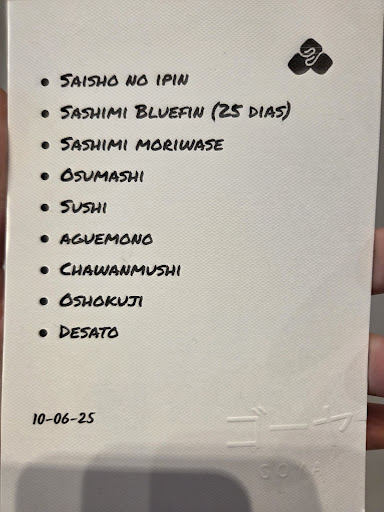 • Saisho no ipin
• Sashimi Bluefin (25 dias)
• Sashimi moriwase
• Osumashi
• Sushi
• aguemono
• Chawanmushi
• Oshokuji
• Desato
10-06-25
ゴーヤー
GOYA